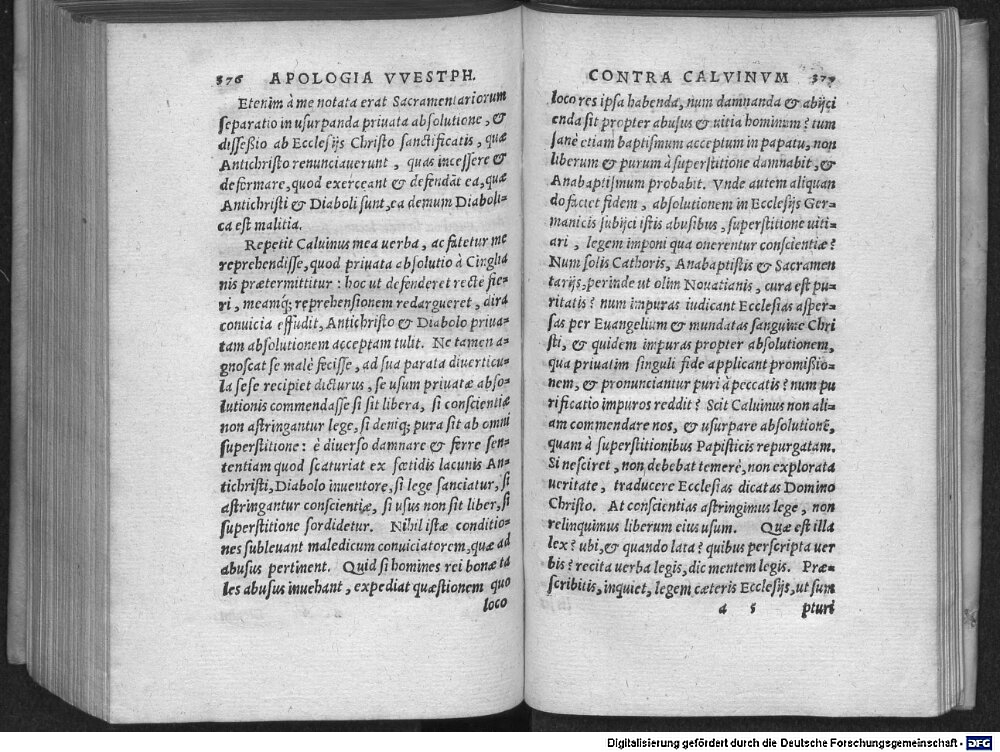 376 APOLOGIA VVESTPH.
Etenim à me notata erat Sacramentariorum
separatio in usurpanda priuata absolutione, &
dissessio ab Ecclesijs Christo sanctificatis, quæ
Antichristo renunciauerunt, quas incessere &
deformare, quod exerceant & defendāt ea, quæ
Antichristi & Diaboli sunt, ea demum Diaboli-
ca est malitia.
Repetit Caluinus mea uerba, ac fatetur me
reprehendisse, quod priuata absolutio à Cinglia
nis prætermittitur: hoc ut defenderet recte fie-
ri, meamq; reprehensionem redargueret, dira
conuicia effudit, Antichristo & Diabolo priua-
tam absolutionem acceptam tulit. Ne tamen a-
gnoscat se malè fecisse, ad sua parata diuerticu-
la sese recipiet dicturus, se usum priuatæ abso-
lutionis commendasse si sit libera, si conscientiæ
non astringantur lege, si deniq; pura sit ab omni
superstitione: è diuerso damnare & ferre sen-
tentiam quod scaturiat ex fœtidis lacunis An-
tichristi, Diabolo inuentore, si lege sanciatur, si
astringantur conscientiæ, si usus non sit liber, si
superstitione sordidetur. Nihil istæ conditio-
nes subleuant maledicum conuiciatorem, quæ ad
abusus pertinent. Quid si homines rei bonæ ta
les abusus inuehant, expediat quæstionem quo
loco
CONTRA CALVINVM 377
loco res ipsa habenda, num damnanda & abijci
enda sit propter abusus & uitia hominum? tum
sanè etiam baptismum acceptum in papatu, non
liberum & purum à superstitione damnabit, &
Anabaptismum probabit. Vnde autem aliquan
do faciet fidem, absolutionem in Ecclesijs Ger-
manicis subijci istis abusibus, superstitione uiti-
ari, legem imponi qua onerentur conscientiæ?
Num solis Catharis, Anabaptistis & Sacramen
tarijs, perinde ut olim Nouatianis, cura est pu-
ritatis? num impuras iudicant Ecclesias asper-
sas per Euangelium & mundatas sanguine Chri
sti, & quidem impuras propter absolutionem,
qua priuatim singuli fide applicant promissio-
nem, & pronunciantur puri à peccatis? num pu
rificatio impuros reddit? Scit Caluinus non ali-
am commendare nos, & usurpare absolutionē,
quam à superstitionibus Papisticis repurgatam.
Si nesciret, non debebat temerè, non explorata
ueritate, traducere Ecclesias dicatas Domino
Christo. At conscientias astringimus lege, non
relinquimus liberum eius usum. Quæ est illa
lex? ubi, & quando lata? quibus perscripta uer
bis? recita uerba legis, dic mentem legis. Præ-
scribitis, inquiet, legem cæteris Ecclesijs, ut sum
a 5 pturi
Digitalisierung gefördert durch die Deutsche Forschungsgemeinschaft - DFG